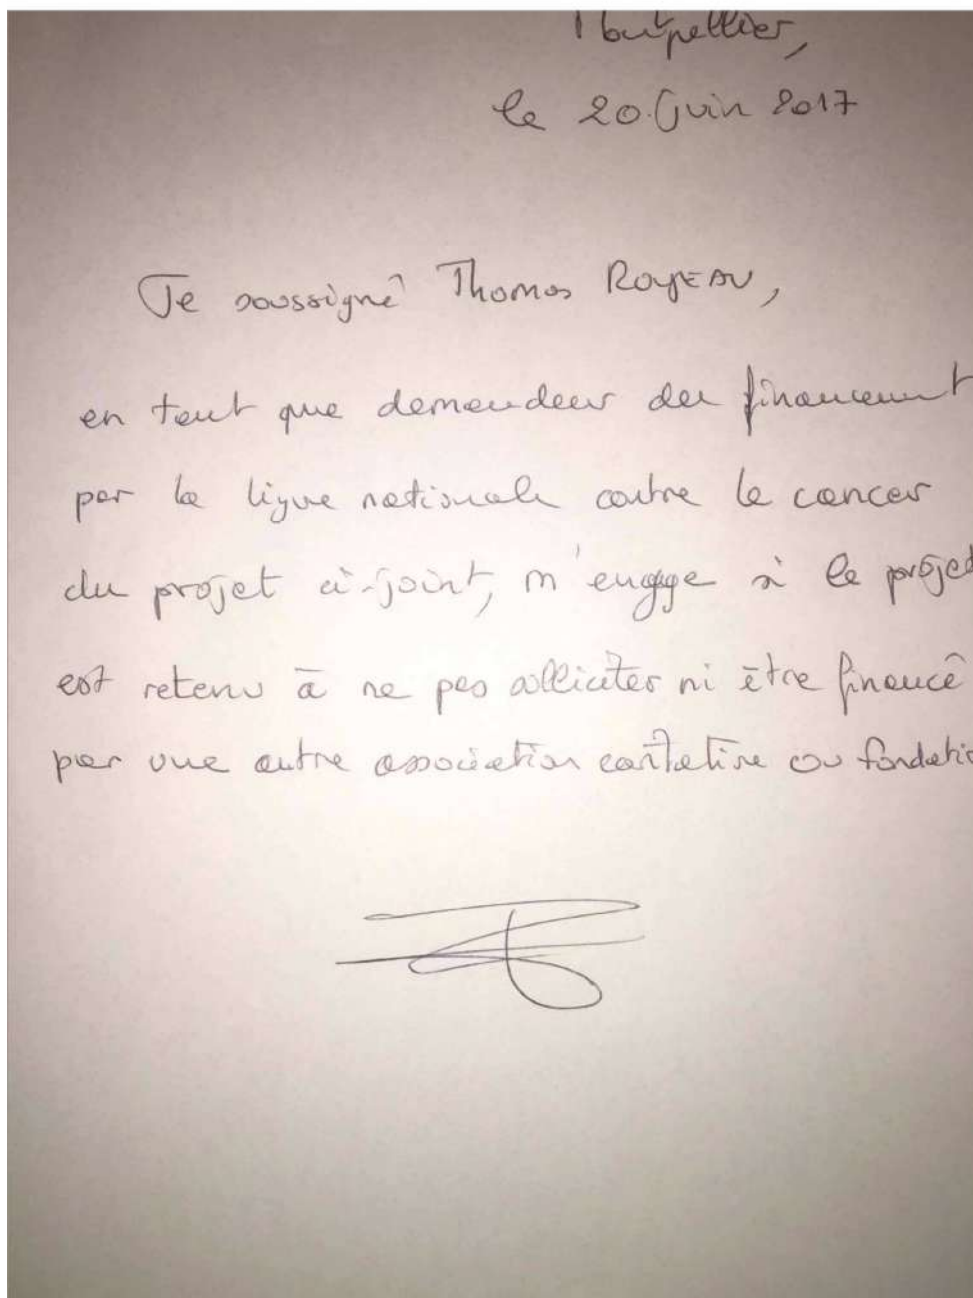 Montpellier,
le 20 Juin 2017
Je soussigné Thomas ROYEAU,
en tant que demandeur du financement
par la ligue nationale contre le cancer
du projet ci-joint, m'engage si le projet
est retenu à ne pas solliciter ni être financé
par une autre association caritative ou fondatio